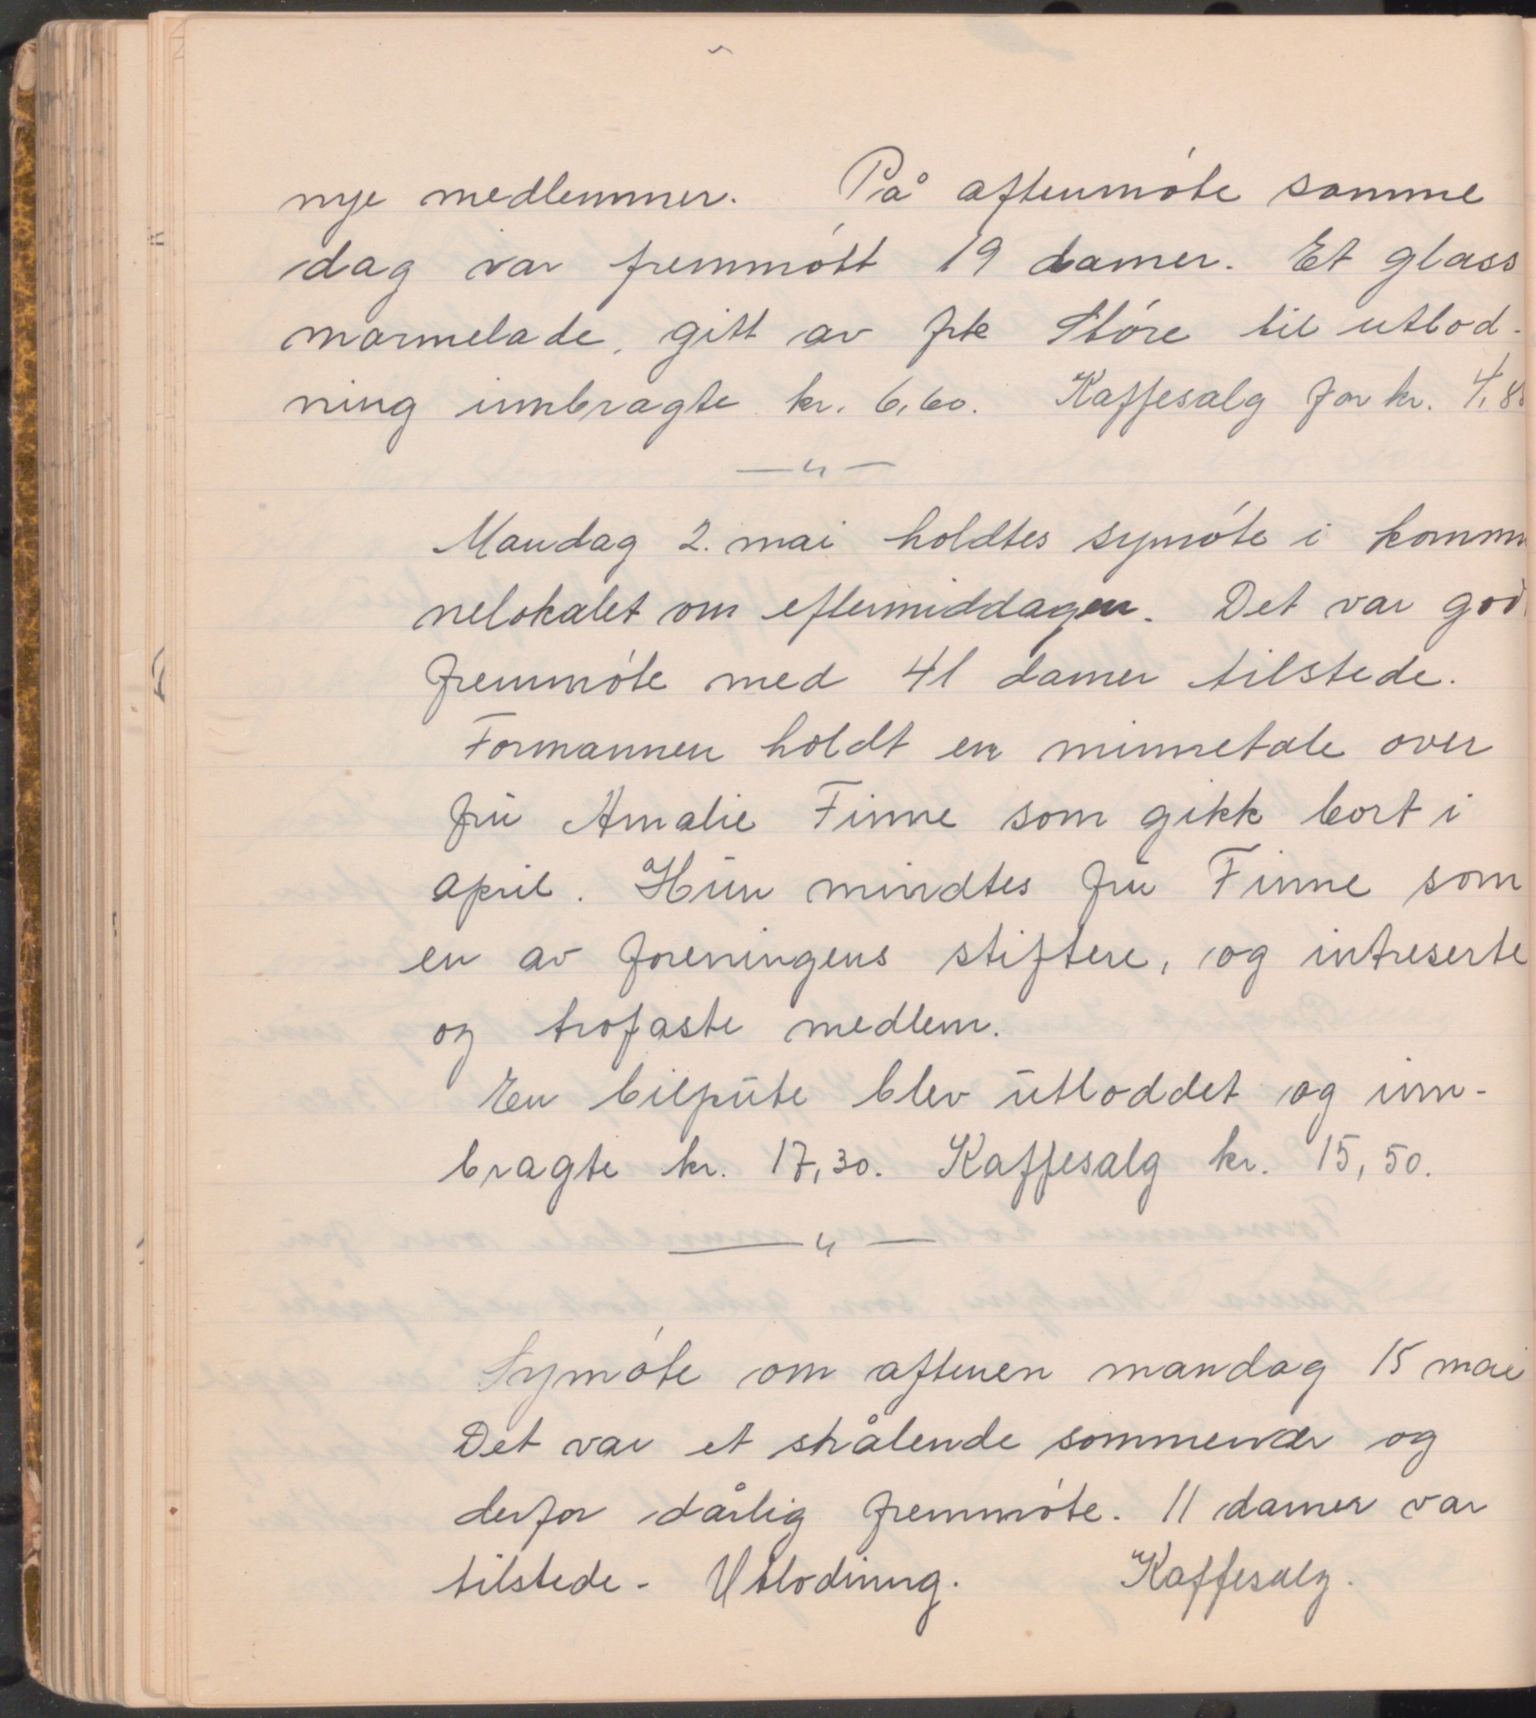 nye medlemmer. På aftenmøte samme
dag var fremmøtt 19 damer. Et glass
marmelade, gitt av frk Støre til utlod-
ning innbragte kr. 6,60. Kaffesalg for kr. 4,80
—"—
Mandag 2. mai holdtes symøte i kommu
nelokalet om eftermiddagen. Det var god
fremmøte med 41 damer tilstede.
Formannen holdt en minnetale over
fru Amalie Finne som gikk bort i
april. Hun mindtes fru Finne som
en av foreningens stiftere, og intreserte
og trofaste medlem.
En bilpute blev utloddet og inn-
bragte kr. 17,30. Kaffesalg kr. 15,50.
—"—
Symøte om aftenen mandag 15 mai
Det var et strålende sommervær og
derfor dårlig fremmøte. 11 damer var
tilstede - Utlodning. Kaffesalg.